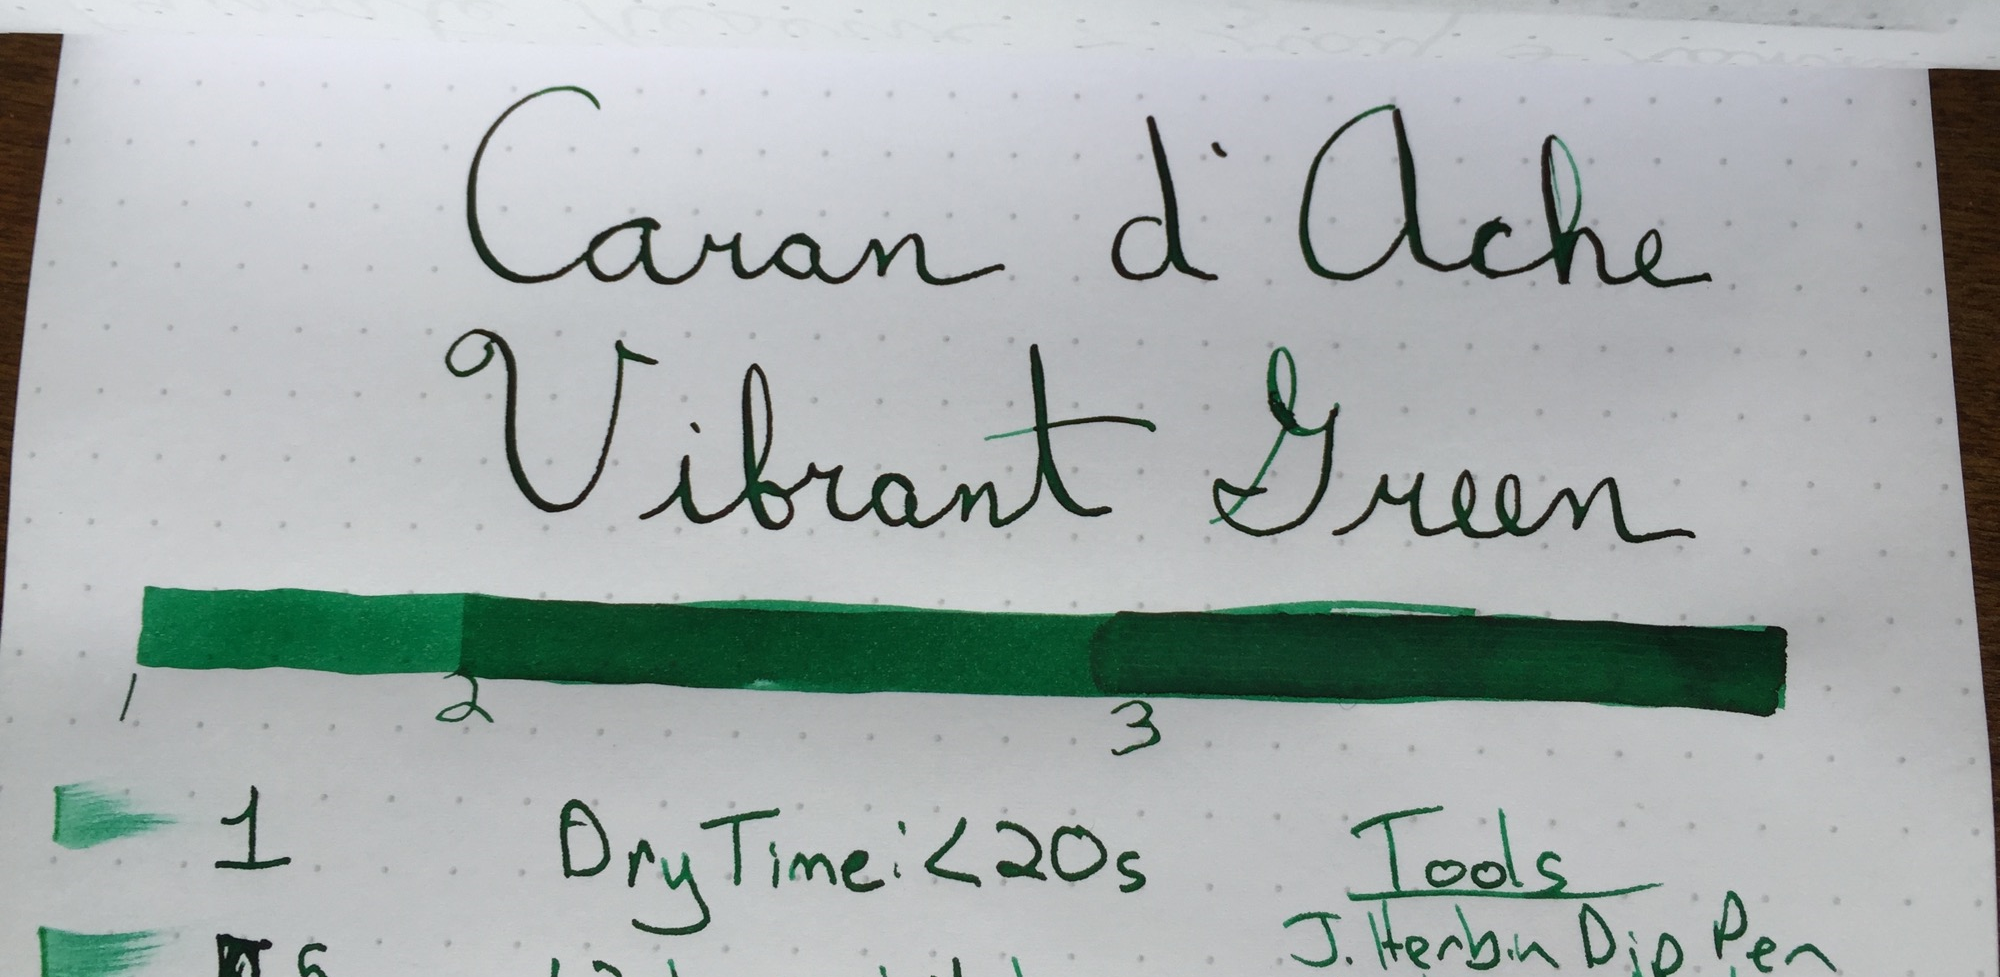 Caran d'Ache
Vibrant Green
1 2 3
1 Dry Time: <20s Tools
J. Herbin Dip Pen
5